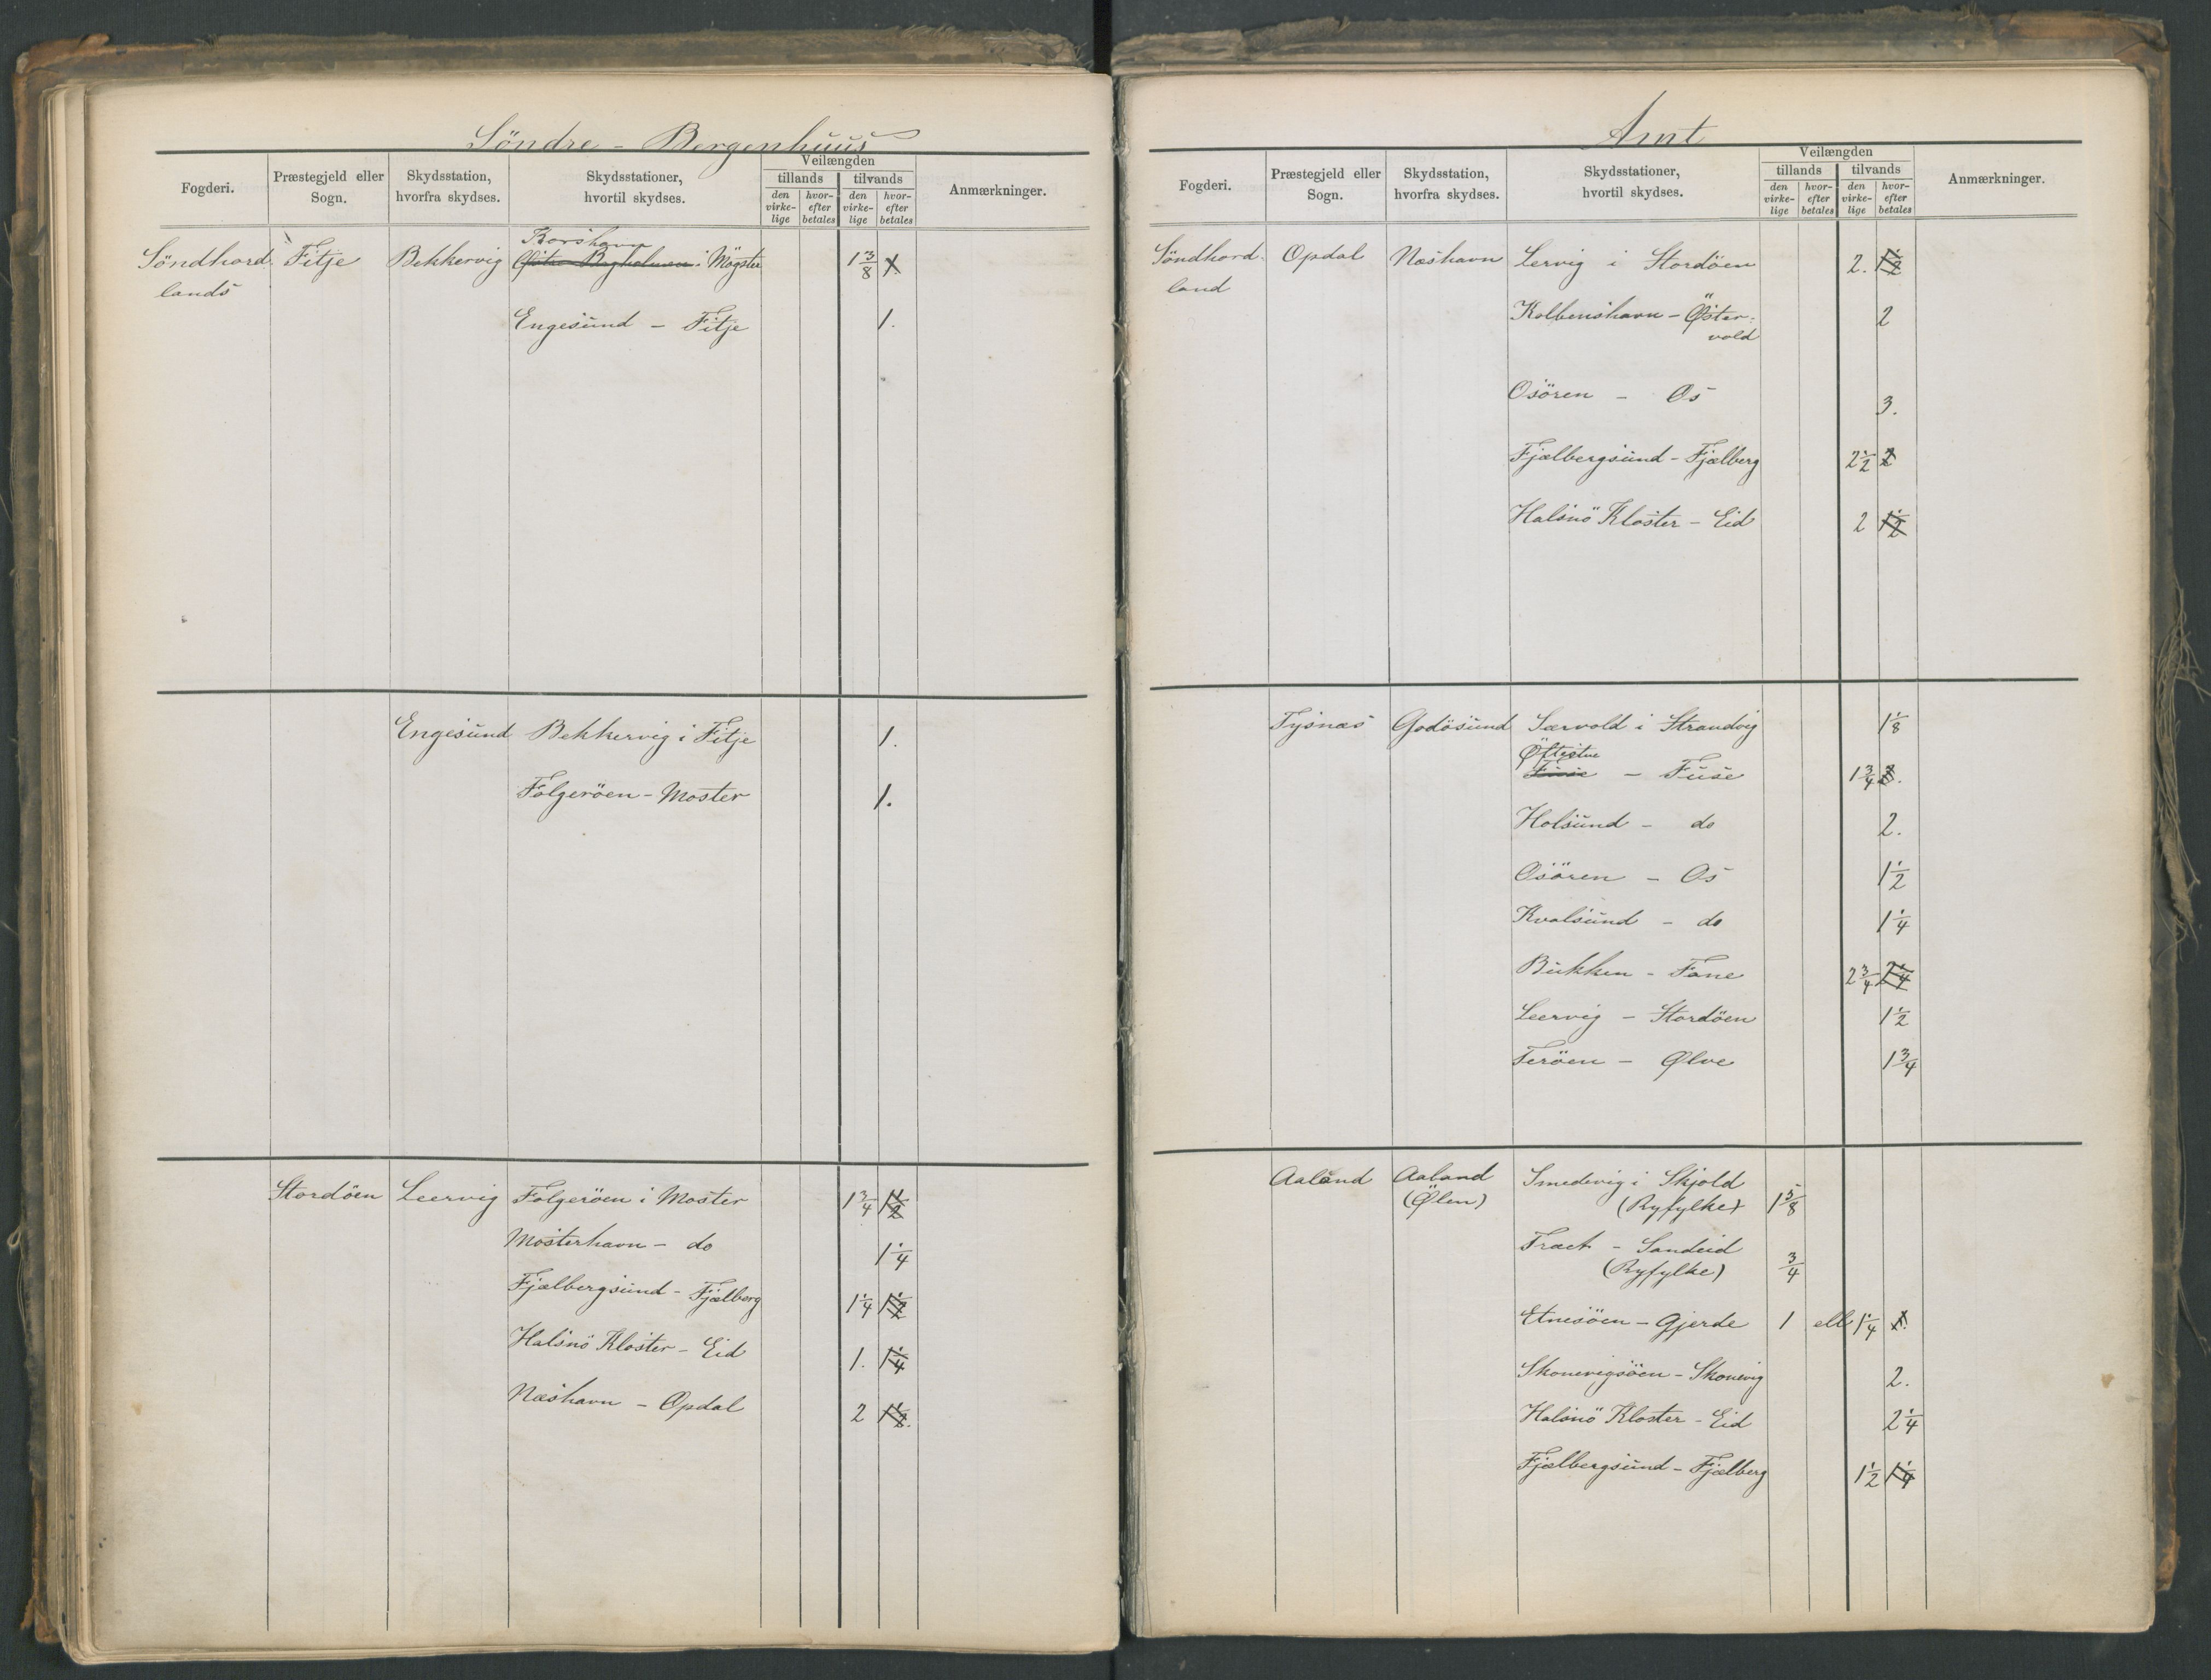 Söndre - Bergenhuus
Fogderi. Præstegjeld eller Sogn. Skydsstation, hvorfra skydses. Skydsstationer, hvortil skydses. Veilængden tillands tilvands den virke-lige hvor-efter betales den virke-lige hvor-efter betales Anmærkninger.
Korshavn
Söndhord- Fitje Bekkervig i Mögster 1 3/8 1
lands
Engesund - Fitje 1.
Engesund Bekkervig i Fitje 1.
Folgeröen - Moster 1.
Stordöen Leervig Folgeröen i Moster 1 3/4 1 1/2
Mosterhavn - do 1 1/4
Fjælbergsund - Fjælberg 1 1/4 1 1/2
Halsnö Kloster - Eid 1. 1 1/4
Næshavn - Opdal 2 1 1/2.
Amt
Fogderi. Præstegjeld eller Sogn. Skydsstation, hvorfra skydses. Skydsstationer, hvortil skydses. Veilængden tillands tilvands den virke-lige hvor-efter betales den virke-lige hvor-efter betales Anmærkninger.
Söndhord- Opdal Næshavn Lervig i Stordöen 2. 1 1/2
land
Kolbenshavn - Öster- 2
vold
Osören - Os 3.
Fjælbergsund - Fjælberg 2 1/2 2
Halsnö Kloster - Eid 2 1 1/2
Tysnæs Godösund Særvold i Strandvig 1 1/8
Öftestue
Fuse - Fuse 1 3/4 2.
Holsund - do 2.
Osören - Os 1 1/2
Kvalsund - do 1 1/4
Bukken - Fane 2 3/4 2 1/4
Leervig - Stordöen 1 1/2
Teröen - Ølve 1 3/4
Aaland Aaland Smedevig i Skjold
(Ølen) (Ryfylke) 1 5/8
Fræt - Sandeid
(Ryfylke) 3/4
Etnesöen - Gjerde 1 ell 1 1/4 1.
Skonevigsöen - Skonevig 2.
Halsnö Kloster - Eid 2 1/4
Fjælbergsund - Fjælberg 1 1/2 1 1/4